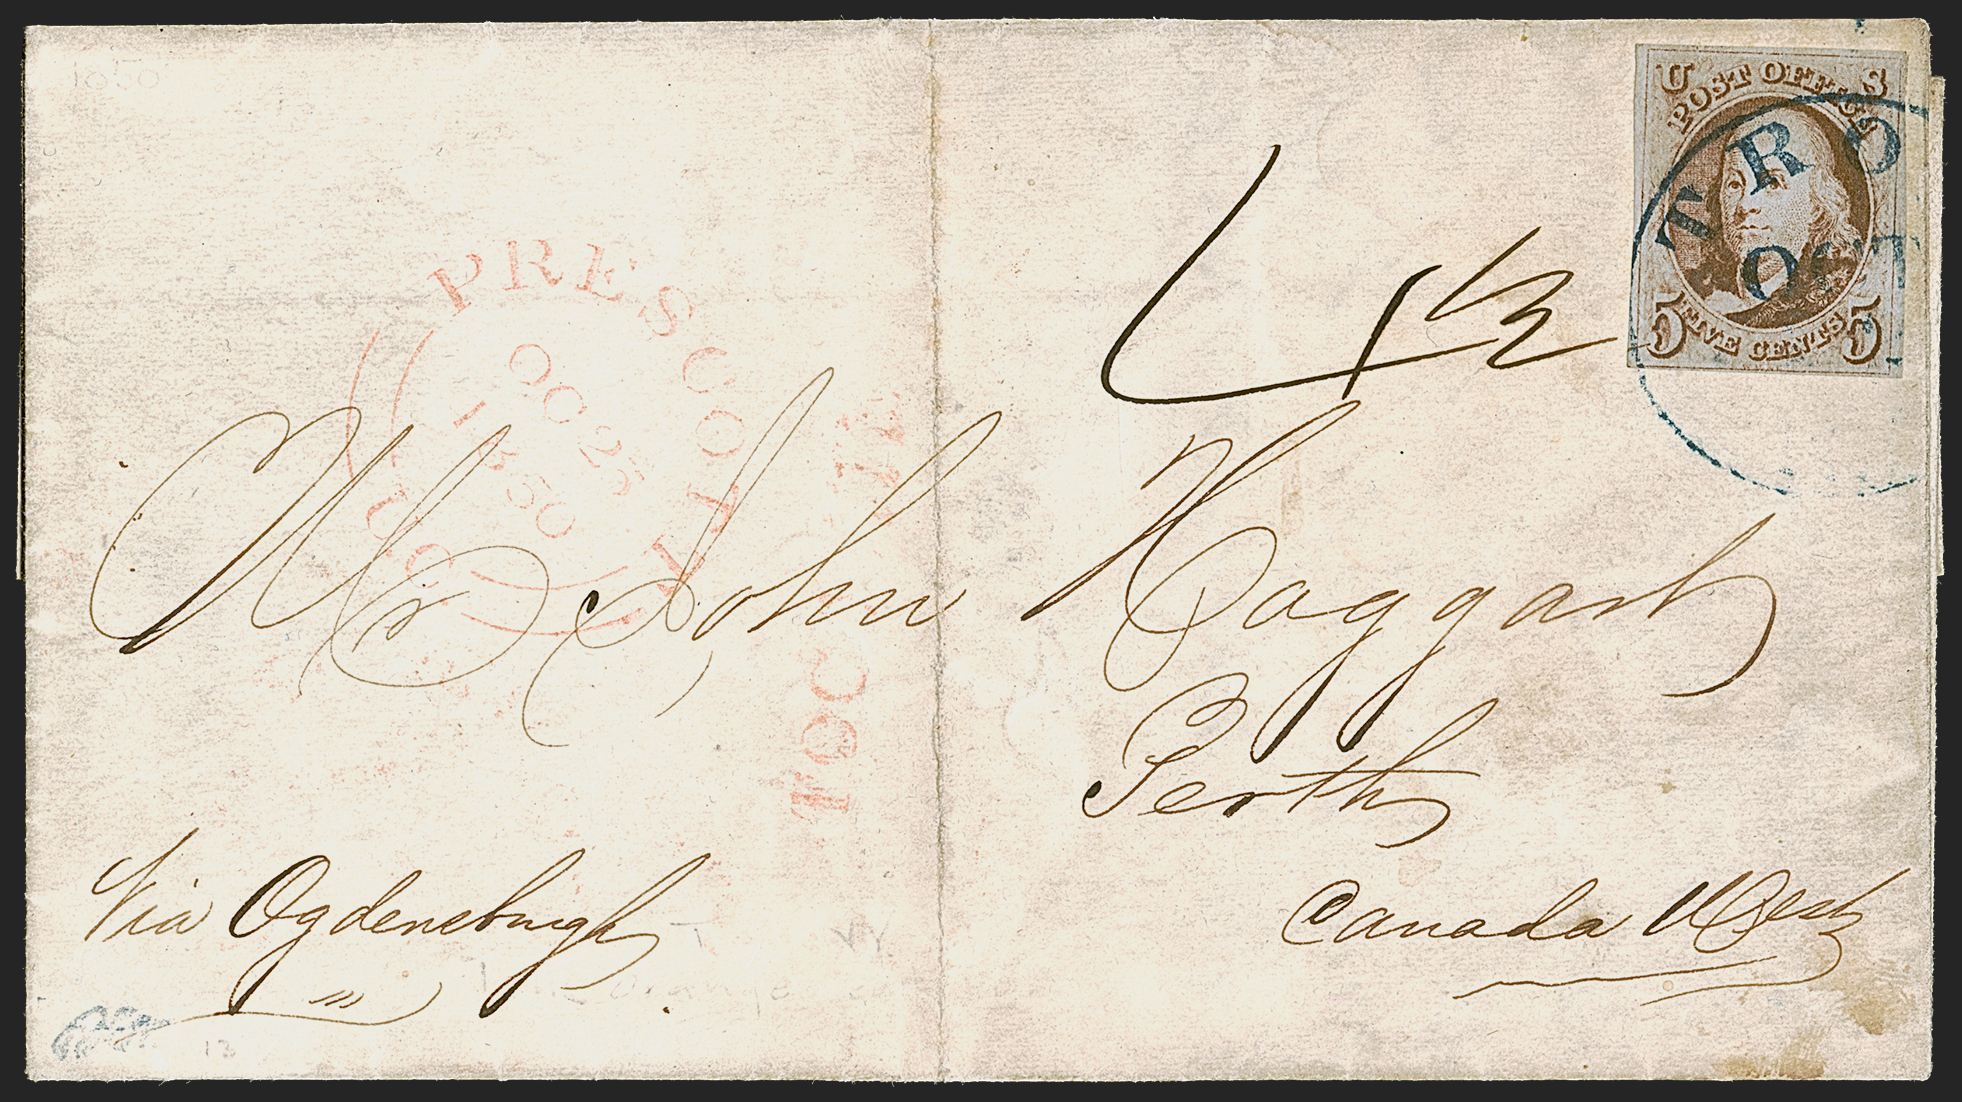 1850
U S
POST OFFICE
FIVE CENTS
5 5
TRO
OST
4 1/2
PRESCOTT
OC 25
1850
U.C.
Mr John Haggart
Perth
Canada West
Via Ogdensburgh
13